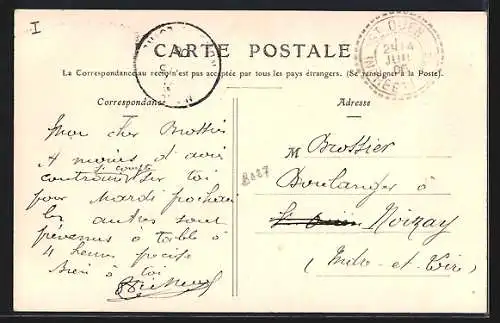 I
ST OUEN
24
JUIN
06
CARTE POSTALE
La Correspondance au recto n'est pas acceptée par tous les pays étrangers. (Se renseigner à la Poste).
Correspondance
Adresse
Mon cher Brossier
A moins d'avis
contraire
je compte sur toi
pour Mardi prochain
les autres sont
prévenus à table à
4 heures précise
Bien à toi
M Brossier
Boulanger à
St Ouen Noizay
(Indre-et-Loire)